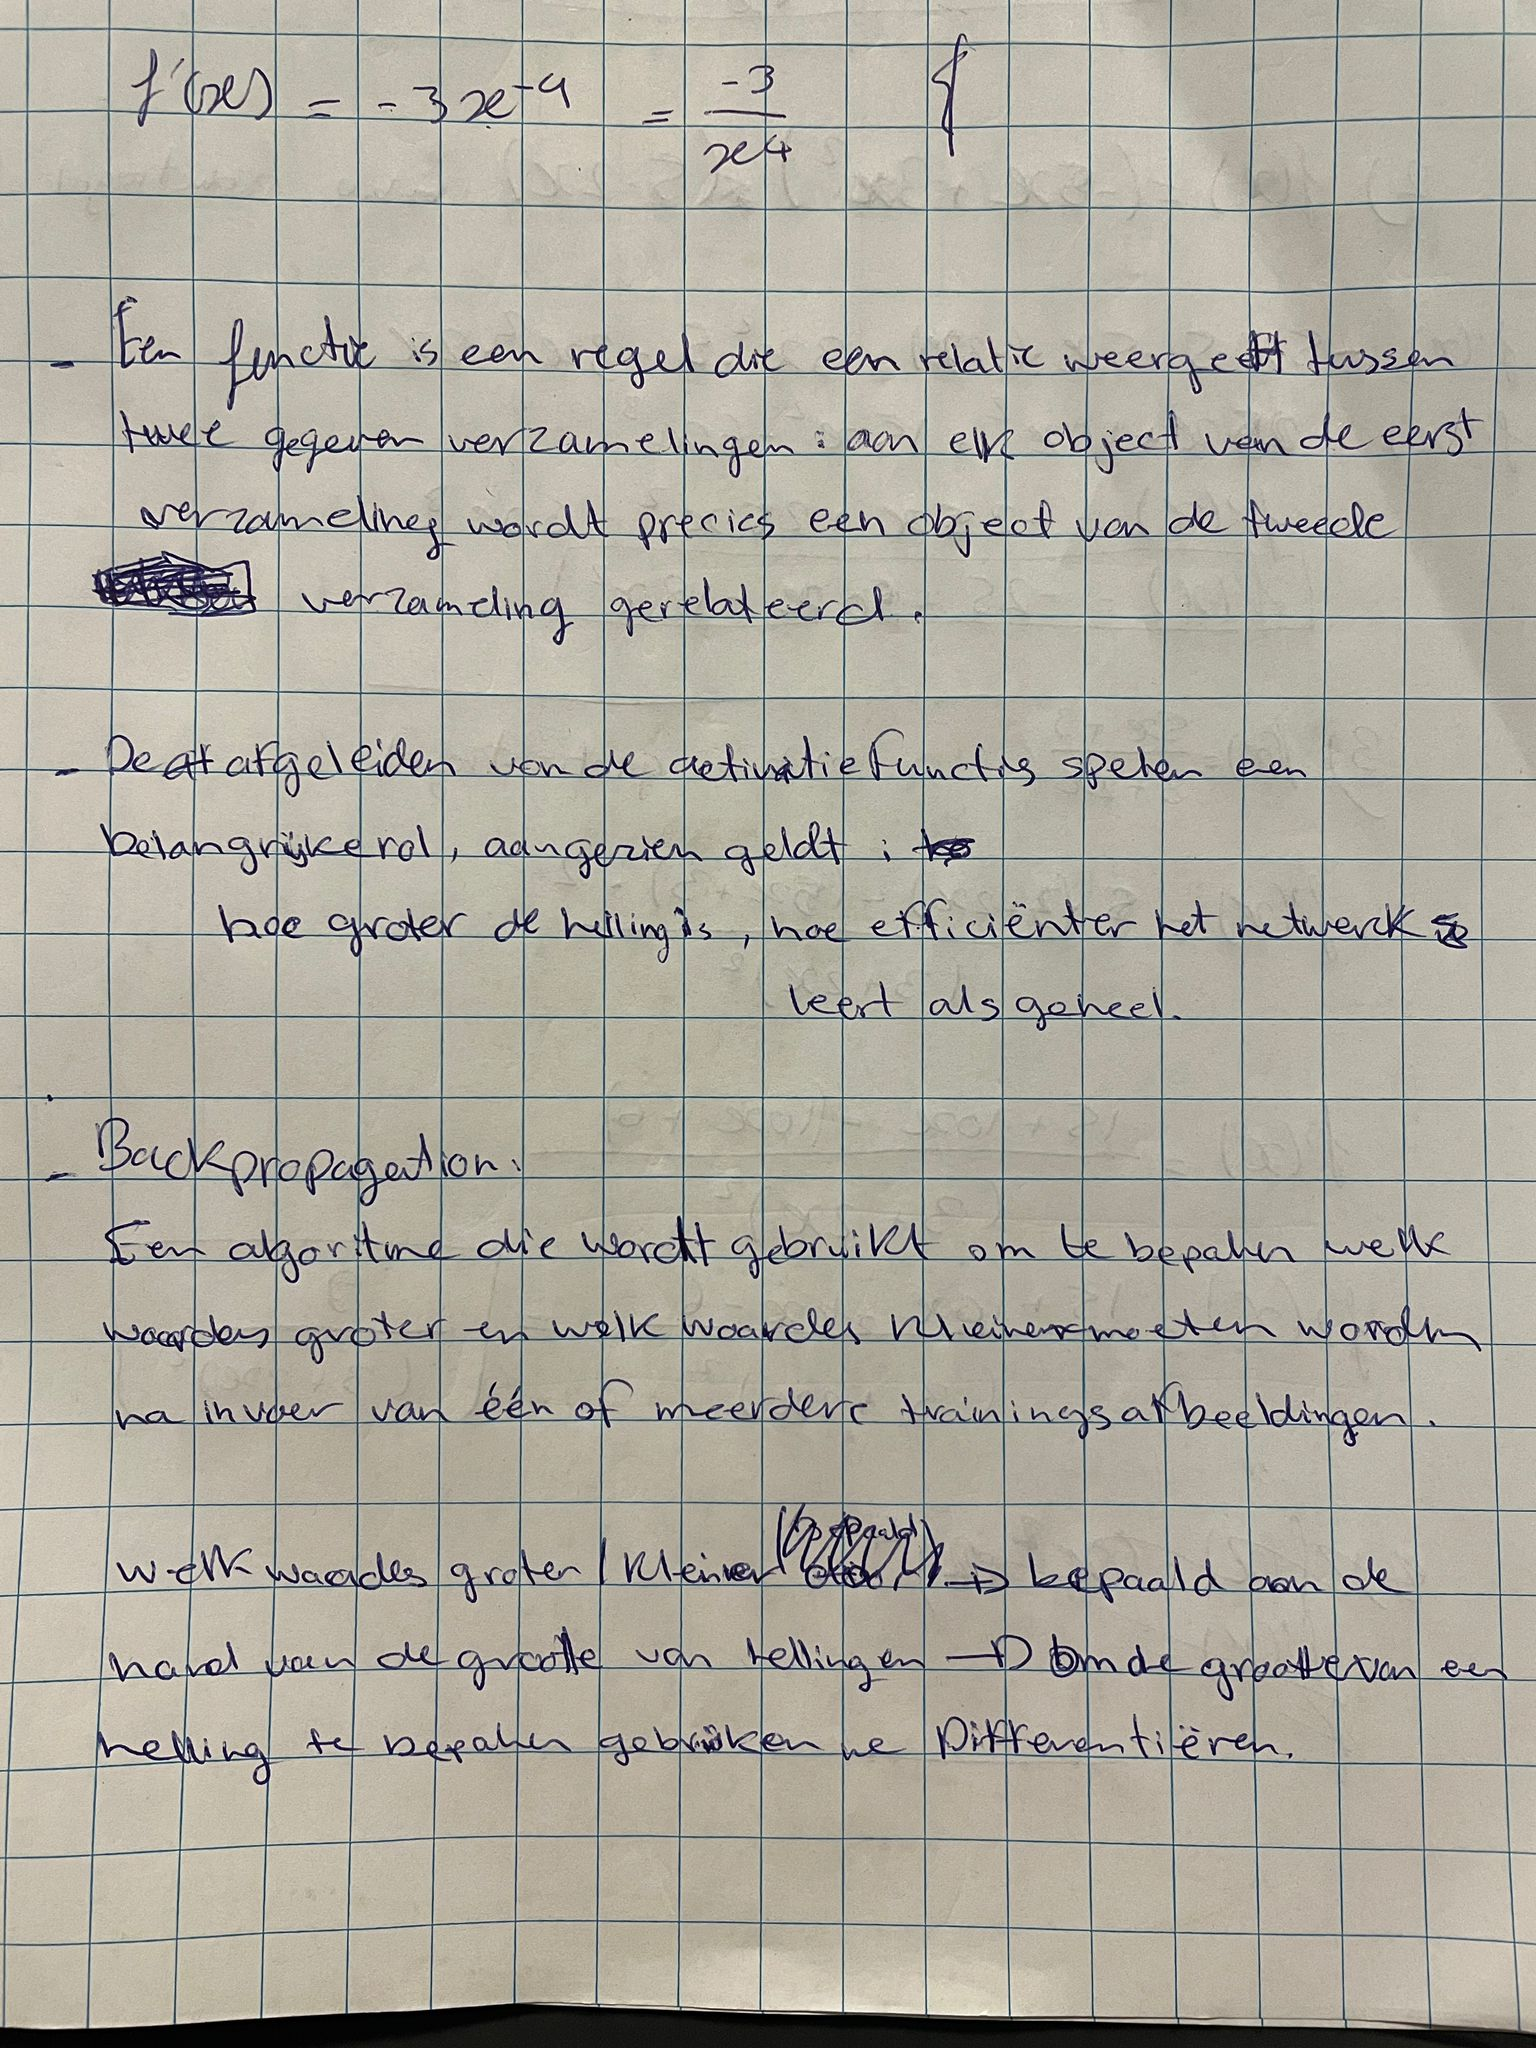 f'(x) = -3x⁻⁴ = -3/x⁴ {
- Een functie is een regel die een relatie weergeeft tussen
twee gegeven verzamelingen : aan elk object van de eerst
verzameling wordt precies een object van de tweede
verzameling gerelateerd.
- De afgeleiden van de activatie functies spelen een
belangrijke rol, aangezien geldt :
hoe groter de helling is, hoe efficiënter het netwerk
leert als geheel.
- Backpropagation:
Een algoritme die wordt gebruikt om te bepalen welk
waardes groter en welk waardes kleiner moeten worden
na invoer van één of meerdere trainingsafbeeldingen.
welk waardes groter / kleiner → bepaald aan de
hand van de grootte van hellingen → Om de grootte van een
helling te bepalen gebruiken we Differentiëren.